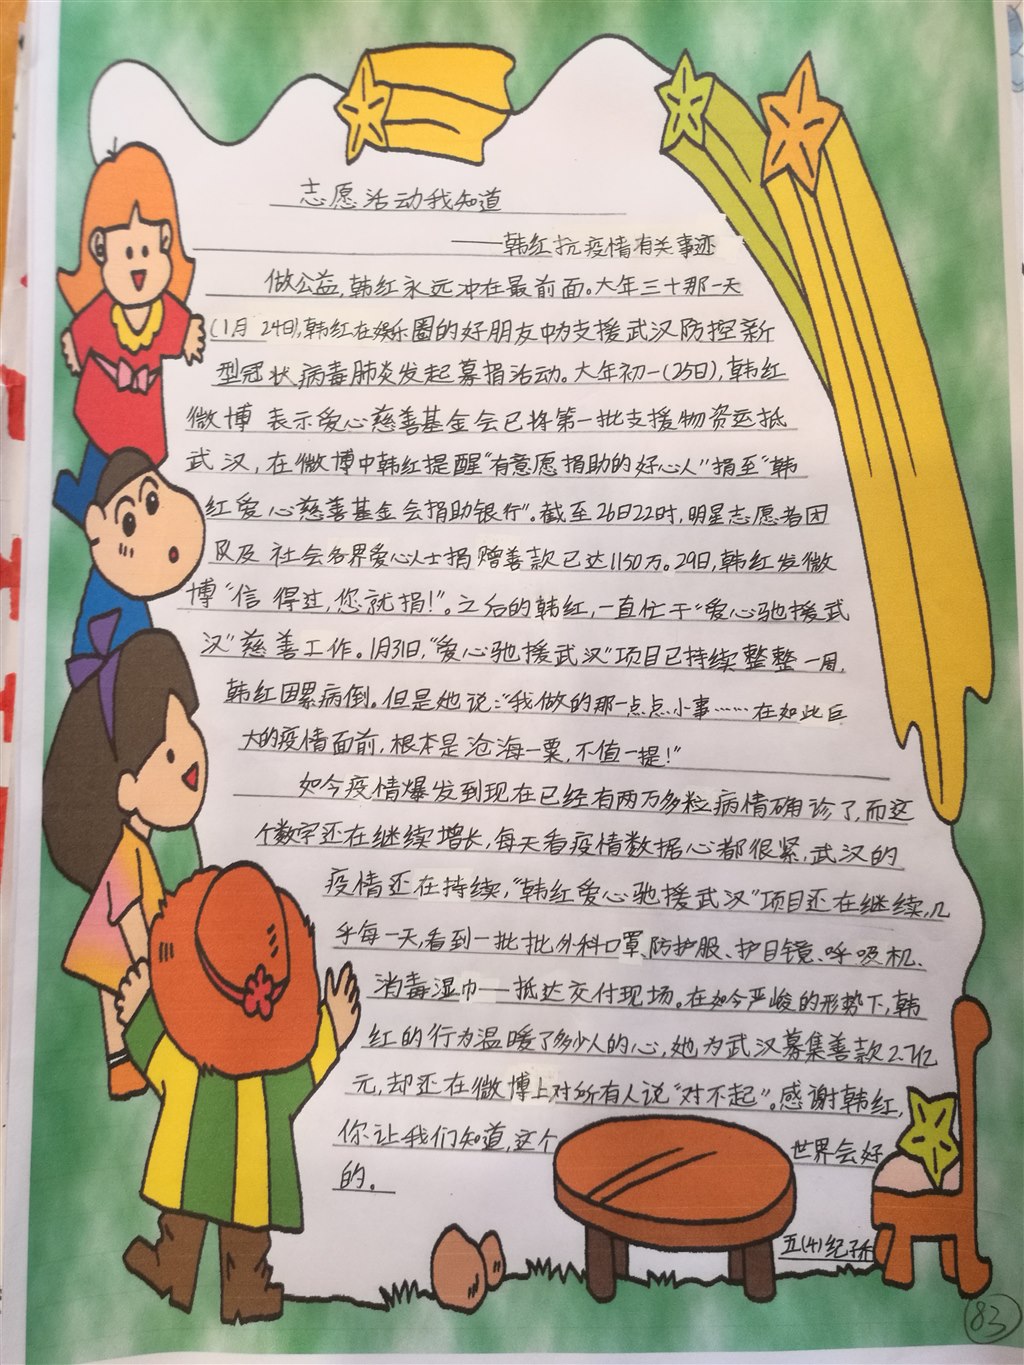 志愿活动我知道
——韩红抗疫情有关事迹
做公益,韩红永远冲在最前面。大年三十那一天
(1月24日),韩红在娱乐圈的好朋友中为支援武汉防控新
型冠状病毒肺炎发起募捐活动。大年初一(25日),韩红
微博表示爱心慈善基金会已将第一批支援物资运抵
武汉,在微博中韩红提醒“有意愿捐助的好心人”捐至“韩
红爱心慈善基金会捐助银行”。截至26日22时,明星志愿者团
队及社会各界爱心人士捐赠善款已达1150万。29日,韩红发微
博“信得过,你就捐!”。之后的韩红,一直忙于“爱心驰援武
汉”慈善工作。1月31日,“爱心驰援武汉”项目已持续整整一周,
韩红因累病倒。但是她说:“我做的那一点点小事……在如此巨
大的疫情面前,根本是沧海一粟,不值一提!”
如今疫情爆发到现在已经有两万多粒病情确诊了,而这
个数字还在继续增长,每天看疫情数据心都很紧,武汉的
疫情还在持续,“韩红爱心驰援武汉”项目还在继续,几
乎每一天,看到一批批外科口罩、防护服、护目镜、呼吸机、
消毒湿巾——抵达交付现场。在如今严峻的形势下,韩
红的行为温暖了多少人的心,她为武汉募集善款2.7亿
元,却还在微博上对所有人说“对不起”。感谢韩红,
你让我们知道,这个世界会好
的。
五(4)纪子
83